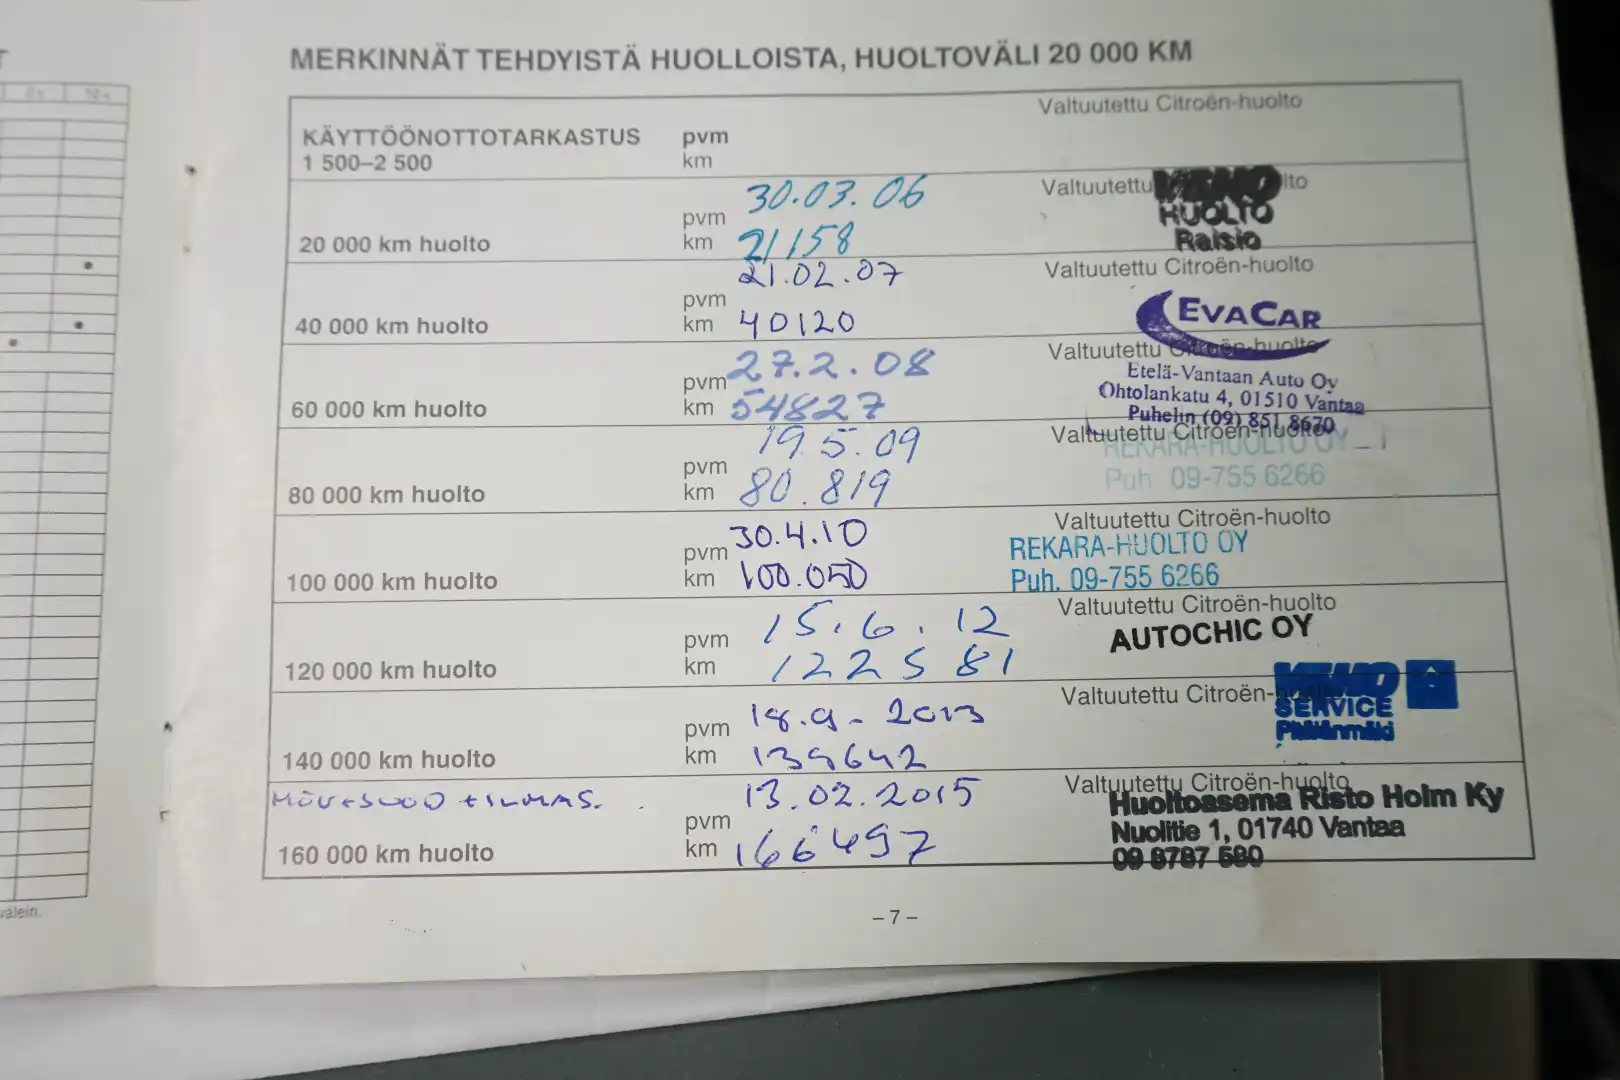 MERKINNÄT TEHDYISTÄ HUOLLOISTA, HUOLTOVÄLI 20 000 KM
KÄYTTÖÖNOTTOTARKASTUS pvm Valtuutettu Citroën-huolto
1 500–2 500 km
30.03.06 Valtuutettu
pvm HUOLTO
20 000 km huolto km 21158 Raisio
21.02.07 Valtuutettu Citroën-huolto
pvm EVACAR
40 000 km huolto km 40120
27.2.08 Valtuutettu Citroën-huolto
pvm Etelä-Vantaan Auto Oy
60 000 km huolto km 54827 Ohtolankatu 4, 01510 Vantaa
Puhelin (09) 851 8670
19.5.09 Valtuutettu Citroën-huolto
pvm REKARA-HUOLTO OY
80 000 km huolto km 80.819 Puh 09-755 6266
30.4.10 Valtuutettu Citroën-huolto
pvm REKARA-HUOLTO OY
100 000 km huolto km 100.050 Puh. 09-755 6266
15.6.12 Valtuutettu Citroën-huolto
pvm AUTOCHIC OY
120 000 km huolto km 122581
18.9-2013 Valtuutettu Citroën-
pvm VEHO SERVICE
140 000 km huolto km 139642
13.02.2015 Valtuutettu Citroën-huolto
pvm Huoltoasema Risto Holm Ky
160 000 km huolto km 166497 Nuolitie 1, 01740 Vantaa
09 8787 580
– 7 –
välein.